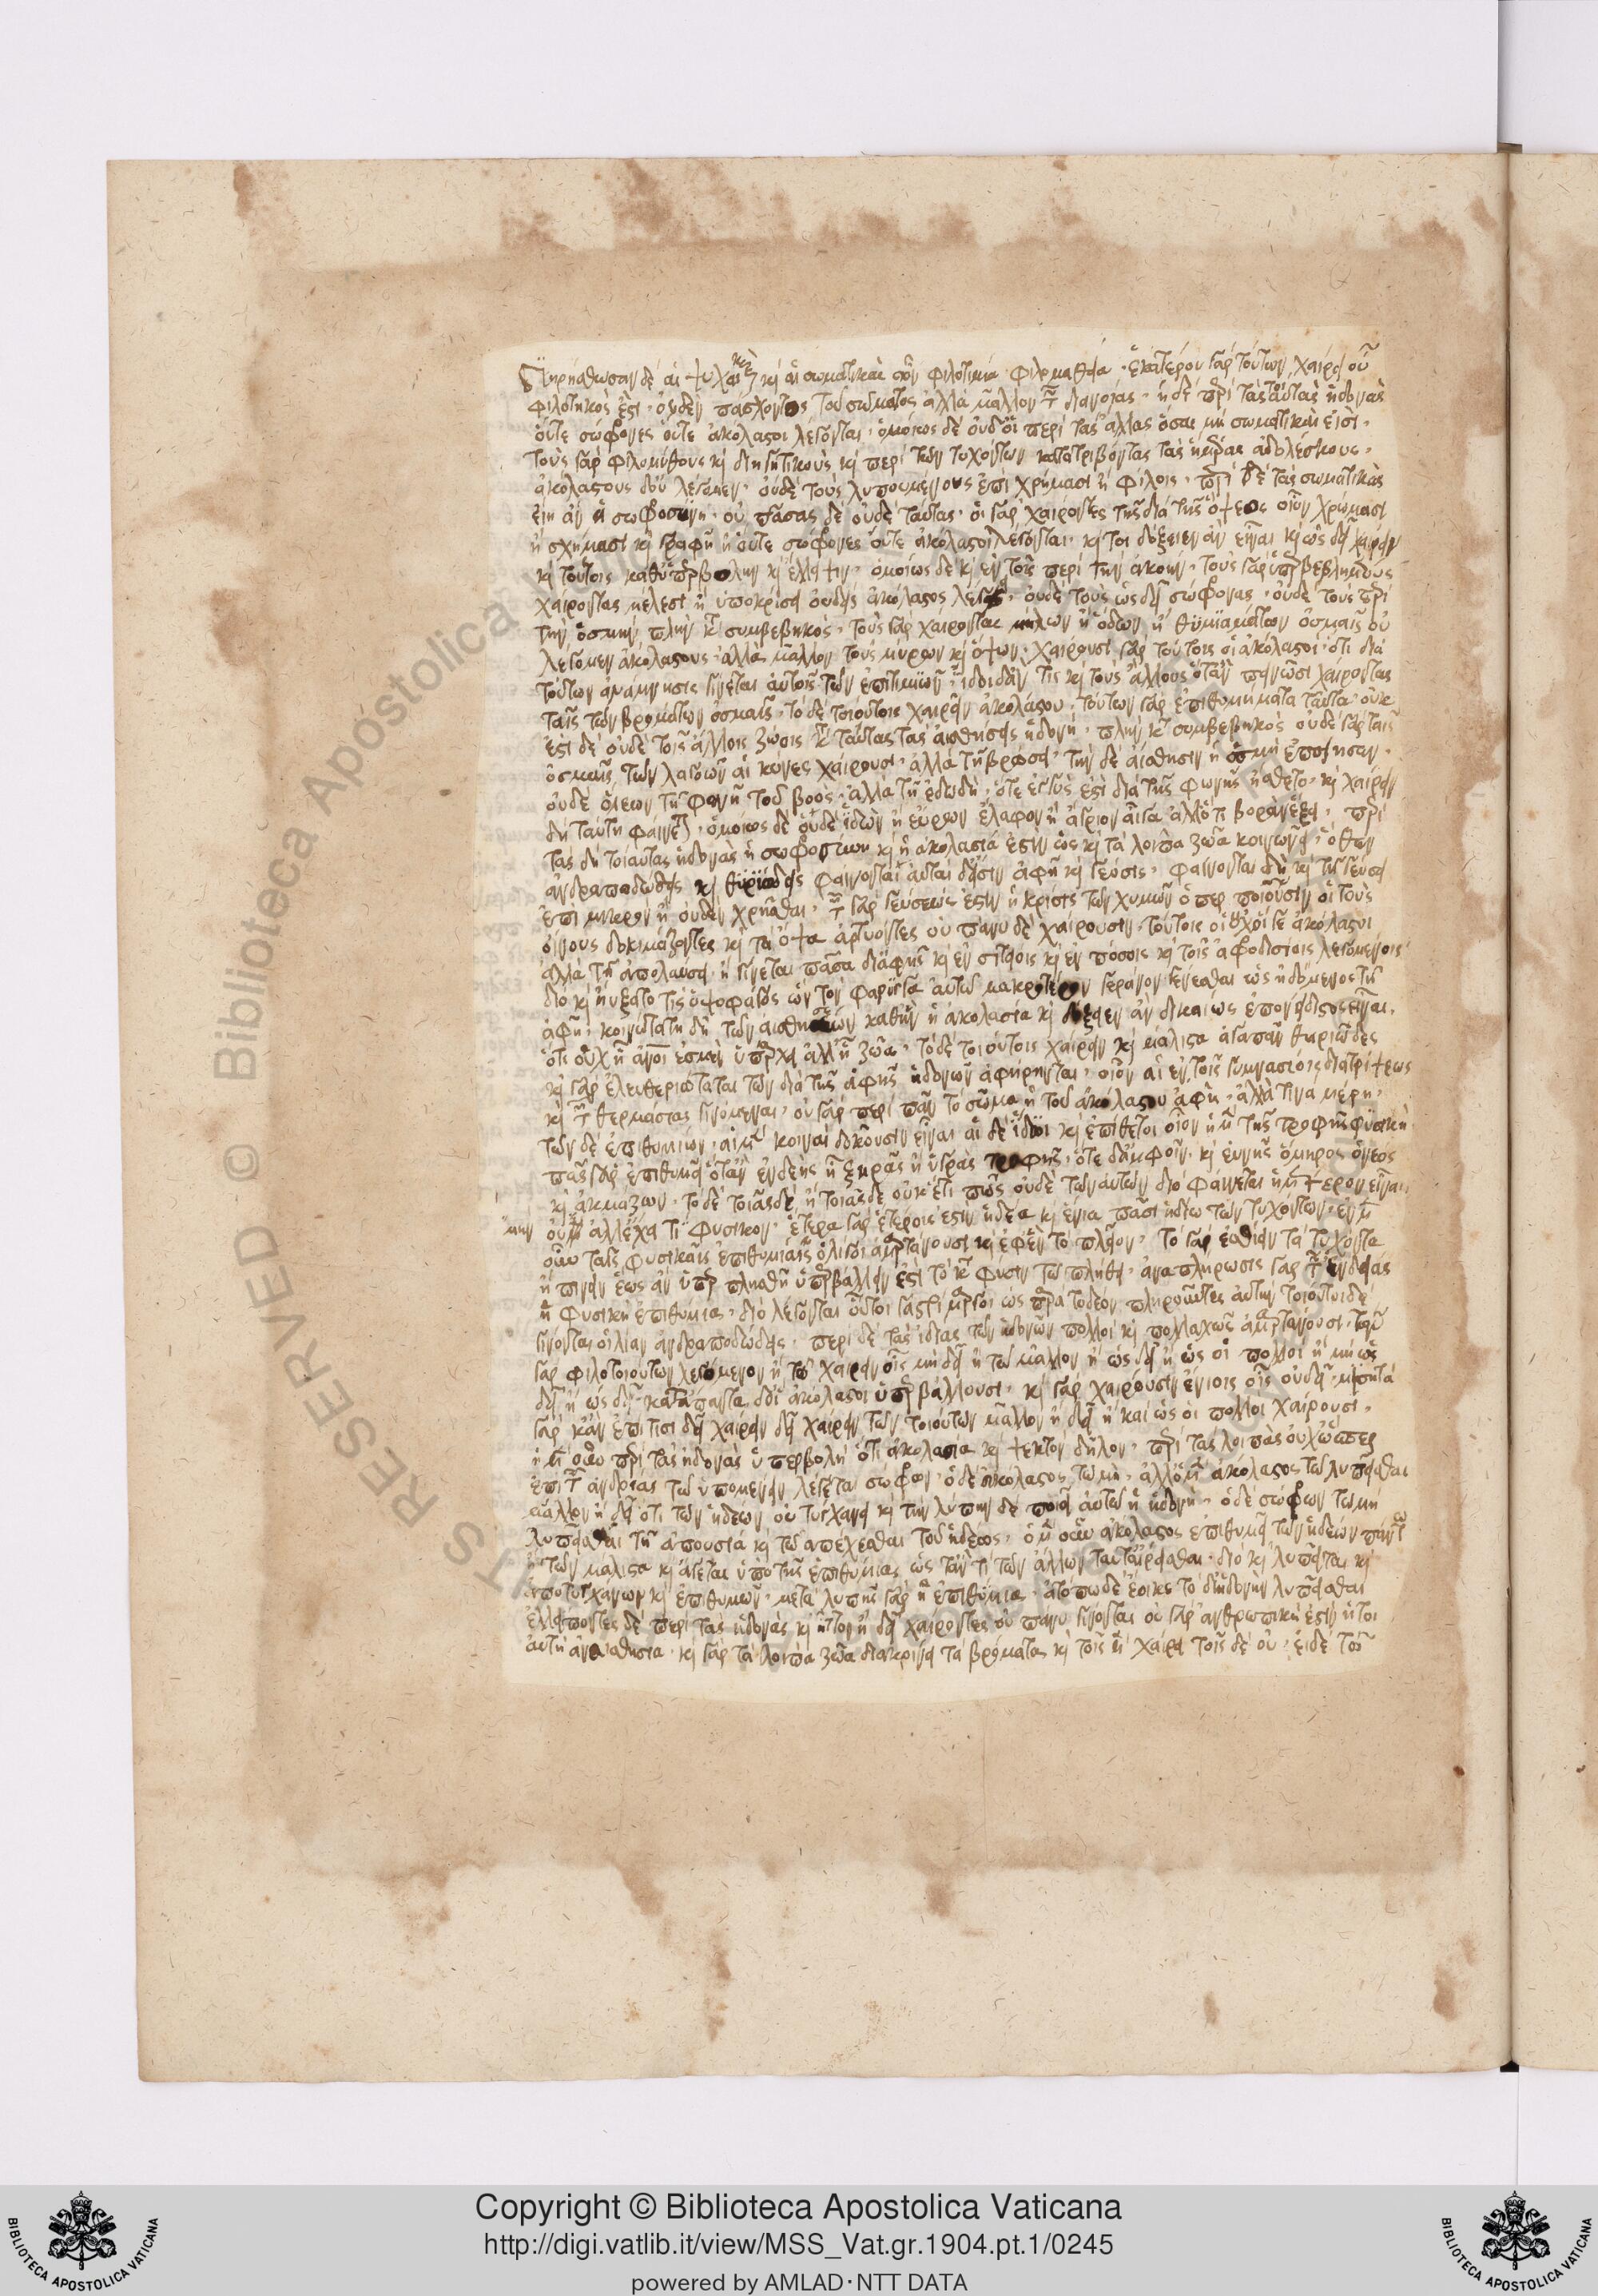 διῃρήσθωσαν δὲ αἱ ψυχικαὶ κ αἱ σωματικαὶ οἷον φιλοτιμία φιλομάθεια · ἑκάτερος γὰρ τούτων χαίρει οὗ
φιλητικός ἐστι · οὐδὲν πάσχοντος τοῦ σώματος ἀλλὰ μᾶλλον τῆς διανοίας · οἱ δὲ περὶ τὰς τοιαύτας ἡδονὰς
οὔτε σώφρονες οὔτε ἀκόλαστοι λέγονται · ὁμοίως δὲ οὐδ' οἱ περὶ τὰς ἄλλας ὅσαι μὴ σωματικαὶ εἰσὶ ·
τοὺς γὰρ φιλομύθους κ διηγητικοὺς κ περὶ τῶν τυχόντων κατατρίβοντας τὰς ἡμέρας ἀδολέσχους ·
ἀκολάστους δ' οὐ λέγομεν · οὐδὲ τοὺς λυπουμένους ἐπὶ χρήμασι ἢ φίλοις · περὶ δὲ τὰς σωματικὰς
εἴη ἂν ἡ σωφροσύνη · οὐ πάσας δὲ οὐδὲ ταύτας · οἱ γὰρ χαίροντες τοῖς διὰ τῆς ὄψεως οἷον χρώμασι
κ σχήμασι κ γραφῇ οὔτε σώφρονες οὔτε ἀκόλαστοι λέγονται · καί τοι δόξειεν ἂν εἶναι κ ὡς δεῖ χαίρειν
κ τούτοις καθ' ὑπερβολὴν κ ἔλλειψιν · ὁμοίως δὲ κ ἐν τοῖς περὶ τὴν ἀκοήν · τοὺς γὰρ ὑπερβεβλημένως
χαίροντας μέλεσι ἢ ὑποκρίσει οὐδεὶς ἀκολάστους λέγει · οὐδὲ τοὺς ὡς δεῖ σώφρονας · οὐδὲ τοὺς περὶ
τὴν ὀσμήν πλὴν κατὰ συμβεβηκός · τοὺς γὰρ χαίροντας μήλων ἢ ῥόδων ἢ θυμιαμάτων ὀσμαῖς οὐ
λέγομεν ἀκολάστους · ἀλλὰ μᾶλλον τοὺς μύρων κ ὄψων · χαίρουσι γὰρ τούτοις οἱ ἀκόλαστοι · ὅτι διὰ
τούτων ἀνάμνησις γίνεται αὐτοῖς τῶν ἐπιθυμιῶν · ἴδοι δ' ἄν τις κ τοὺς ἄλλους ὅταν πεινῶσι χαίροντας
ταῖς τῶν βρωμάτων ὀσμαῖς · τὸ δὲ τοιούτοις χαίρειν ἀκολάστου · τούτων γὰρ ἐπιθυμήματα ταῦτα · οὐκ
ἔστι δὲ οὐδὲ τοῖς ἄλλοις ζώοις κατὰ ταύτας τὰς αἰσθήσεις ἡδονή · πλὴν κατὰ συμβεβηκός οὐδὲ γὰρ ταῖς
ὀσμαῖς τῶν λαγωῶν αἱ κύνες χαίρουσι · ἀλλὰ τῇ βρώσει · τὴν δὲ αἴσθησιν ἡ ὀσμὴ ἐποίησεν ·
οὐδὲ ὁ λέων τῇ φωνῇ τοῦ βοός · ἀλλὰ τῇ ἐδωδῇ · ὅτι ἐγγύς ἐστι διὰ τῆς φωνῆς ᾔσθετο · κ χαίρειν
δὴ ταύτῃ φαίνεται · ὁμοίως δὲ οὐδὲ ἰδὼν ἢ εὑρὼν ἔλαφον ἢ ἄγριον αἶγα ἀλλ' ὅτι βορὰν ἕξει · περὶ
τὰς δὴ τοιαύτας ἡδονὰς ἡ σωφροσύνη κ ἡ ἀκολασία ἐστὶν ὡς κ τὰ λοιπὰ ζῶα κοινωνεῖ · ὅθεν
ἀνδραποδώδεις κ θηριώδεις φαίνονται αὗται δέ εἰσιν ἁφὴ κ γεῦσις · φαίνονται δὴ κ τῇ γεύσει
ἐπὶ μικρὸν ἢ οὐδὲν χρῆσθαι · τῆς γὰρ γεύσεώς ἐστιν ἡ κρίσις τῶν χυμῶν ὅπερ ποιοῦσιν οἱ τοὺς
οἴνους δοκιμάζοντες κ τὰ ὄψα ἀρτύοντες οὐ πάνυ δὲ χαίρουσιν τούτοις ἢ οὐχ οἵ γε ἀκόλαστοι
ἀλλὰ τῇ ἀπολαύσει ἣ γίνεται πᾶσα δι' ἁφῆς κ ἐν σιτίοις κ ἐν πόσοις κ τοῖς ἀφροδισίοις λεγομένοις
διὸ κ ηὔξατό τις ὀψοφάγος ὢν τὸν φάρυγγα αὐτῷ μακρότερον γεράνου γενέσθαι ὡς ἡδόμενος τῇ
ἁφῇ · κοινοτάτη δὴ τῶν αἰσθήσεων καθ' ἣν ἡ ἀκολασία κ δόξειεν ἂν δικαίως ἐπονείδιστος εἶναι ·
ὅτι οὐχ ᾗ ἄνοι ἐσμὲν ὑπάρχει ἀλλ' ᾗ ζῶα · τὸ δὲ τοιούτοις χαίρειν κ μάλιστα ἀγαπᾶν θηριῶδες
κ γὰρ ἐλευθεριώταται τῶν διὰ τῆς ἁφῆς ἡδονῶν ἀφῄρηνται · οἷον αἱ ἐν τοῖς γυμνασίοις διὰ τρίψεως
κ τῆς θερμασίας γινόμεναι · οὐ γὰρ περὶ πᾶν τὸ σῶμα ἡ τοῦ ἀκολάστου ἁφή · ἀλλὰ τινα μέρη ·
τῶν δὲ ἐπιθυμιῶν · αἱ μὲν κοιναὶ δοκοῦσιν εἶναι αἱ δὲ ἴδιοι κ ἐπίθετοι οἷον ἡ μὲν τῆς τροφῆς φυσική
πᾶς γὰρ ἐπιθυμεῖ ὅταν ἐνδεὴς ἢ ξηρᾶς ἢ ὑγρᾶς τροφῆς · ὁτὲ δ' ἀμφοῖν · κ εὐνῆς ὅμηρος ὁ νέος
κ ἀκμάζων · τὸ δὲ τοιᾶσδε ἢ τοιᾶσδε οὐκέτι πᾶς οὐδὲ τῶν αὐτῶν διὸ φαίνεται ἡμέτερον εἶναι
οὐ μὴν ἀλλ' ἔχει τι φυσικόν · ἕτερα γὰρ ἑτέροις ἐστὶν ἡδέα κ ἔνια πᾶσι ἡδίω τῶν τυχόντων · ἐν μὲν
οὖν ταῖς φυσικαῖς ἐπιθυμίαις ὀλίγοι ἁμαρτάνουσι κ ἐφ' ἓν τὸ πλεῖον · τὸ γὰρ ἐσθίειν τὰ τυχόντα
ἢ πίνειν ἕως ἂν ὑπερπλησθῇ ὑπερβάλλειν ἐστὶ τὸ κατὰ φύσιν τῷ πλήθει · ἀναπλήρωσις γὰρ τῆς ἐνδείας
ἡ φυσικὴ ἐπιθυμία · διὸ λέγονται οὗτοι γαστρίμαργοι ὡς παρὰ τὸ δέον πληροῦντες αὐτήν τοιοῦτοι δὲ
γίνονται οἱ λίαν ἀνδραποδώδεις · περὶ δὲ τὰς ἰδίας τῶν ἡδονῶν πολλοὶ κ πολλαχῶς ἁμαρτάνουσι · τῶν
γὰρ φιλοτοιούτων λεγομένων ἢ τῷ χαίρειν οἷς μὴ δεῖ ἢ τῷ μᾶλλον ἢ ὡς δεῖ ἢ ὡς οἱ πολλοὶ ἢ μὴ ὡς
δεῖ ἢ ὡς δεῖ κατὰ πάντα δ' οἱ ἀκόλαστοι ὑπερβάλλουσι · κ γὰρ χαίρουσιν ἐνίοις οἷς οὐ δεῖ · μισητὰ
γὰρ κἂν ἐπί τισι δεῖ χαίρειν δεῖ χαίρειν τῶν τοιούτων μᾶλλον ἢ δεῖ ἢ καὶ ὡς οἱ πολλοὶ χαίρουσι ·
ἡ μὲν οὖν περὶ τὰς ἡδονὰς ὑπερβολὴ ὅτι ἀκολασία κ ψεκτόν δῆλον · περὶ τὰς λοιπὰς οὐχ ὥσπερ
ἐπὶ τῆς ἀνδρείας τῷ ὑπομένειν λέγεται σώφρων · ὁ δὲ ἀκόλαστος τῷ μή · ἀλλ' ὁ μὲν ἀκόλαστος τῷ λυπεῖσθαι
μᾶλλον ἢ δεῖ ὅτι τῶν ἡδέων οὐ τυγχάνει κ τὴν λύπην δὲ ποιεῖ αὐτῷ ἡ ἡδονή · ὁ δὲ σώφρων τῷ μὴ
λυπεῖσθαι τῇ ἀπουσίᾳ κ τῷ ἀπέχεσθαι τοῦ ἡδέος · ὁ μὲν οὖν ἀκόλαστος ἐπιθυμεῖ τῶν ἡδέων πάντων
ἢ τῶν μάλιστα κ ἄγεται ὑπὸ τῆς ἐπιθυμίας ὡς τἄν τι τῶν ἄλλων ταῦτα αἱρεῖσθαι · διὸ κ λυπεῖται κ
ἀποτυγχάνων κ ἐπιθυμῶν · μετὰ λύπης γὰρ ἡ ἐπιθυμία · ἀτόπῳ δὲ ἔοικε τὸ δι' ἡδονὴν λυπεῖσθαι
ἐλλείποντες δὲ περὶ τὰς ἡδονὰς κ ἧττον ἢ δεῖ χαίροντες οὐ πάνυ γίνονται οὐ γὰρ ἀνθρωπική ἐστιν ἡ τοι
αύτη ἀναισθησία · κ γὰρ τὰ λοιπὰ ζῶα διακρίνει τὰ βρώματα κ τοῖς μὲν χαίρει τοῖς δὲ οὔ · εἰ δέ τῳ
Copyright © Biblioteca Apostolica Vaticana
http://digi.vatlib.it/view/MSS_Vat.gr.1904.pt.1/0245
powered by AMLAD·NTT DATA
BIBLIOTECA APOSTOLICA VATICANA
BIBLIOTECA APOSTOLICA VATICANA